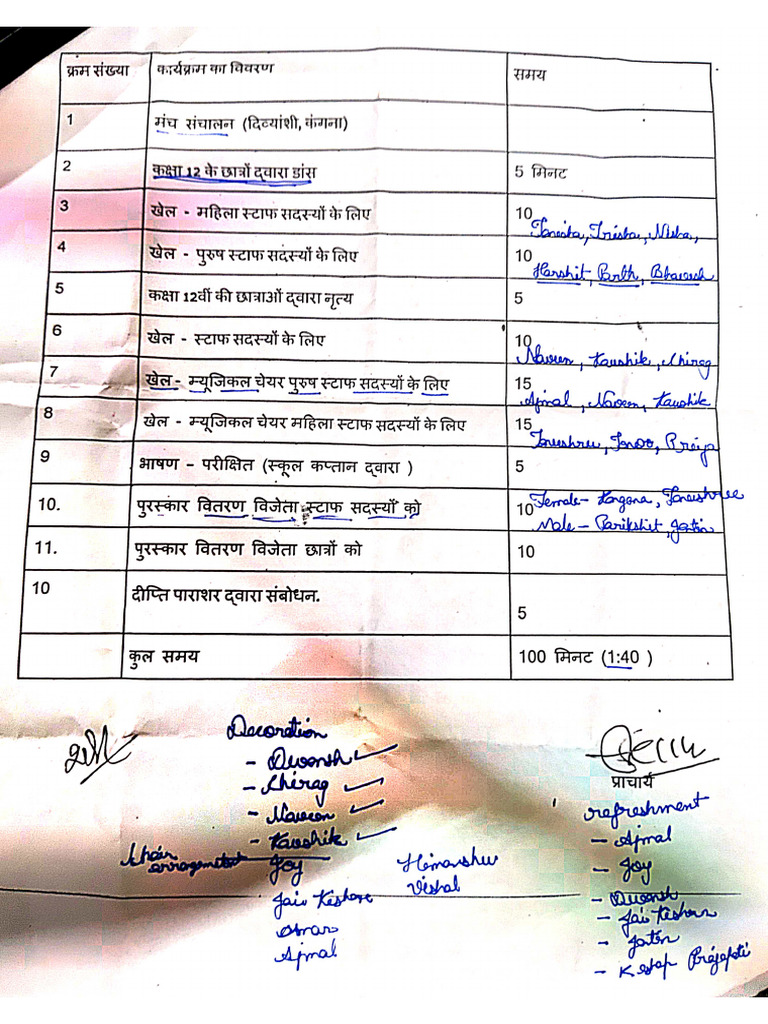 क्रम संख्या कार्यक्रम का विवरण समय
1 मंच संचालन (दिव्यांशी, कंगना)
2 कक्षा 12 के छात्रों द्वारा डांस 5 मिनट
3 खेल - महिला स्टाफ सदस्यों के लिए 10
Tanisha, Trisha, Nisha,
4 खेल - पुरुष स्टाफ सदस्यों के लिए 10
Harshit, Parth, Bhavesh
5 कक्षा 12वीं की छात्राओं द्वारा नृत्य 5
6 खेल - स्टाफ सदस्यों के लिए 10
Naveen, Kaushik, Chirag
7 खेल - म्यूजिकल चेयर पुरुष स्टाफ सदस्यों के लिए 15
Ajmal, Naveen, Kaushik
8 खेल - म्यूजिकल चेयर महिला स्टाफ सदस्यों के लिए 15
Tanushree, Tanoo, Priya
9 भाषण - परीक्षित (स्कूल कप्तान द्वारा ) 5
Female - Kangana, Tanushree
10. पुरस्कार वितरण विजेता स्टाफ सदस्यों को 10
Male - Parikshit, Jatin
11. पुरस्कार वितरण विजेता छात्रों को 10
10 दीप्ति पाराशर द्वारा संबोधन. 5
कुल समय 100 मिनट (1:40 )
प्राचार्य
Decoration
- Divansh
- Chirag
- Naveen
- Kaushik
Chair arrangement Joy
Jai Kishore
Ajmal
Himanshu
Vishal
refreshment
- Ajmal
- Joy
- Divansh
- Jai Kishan
- Jatin